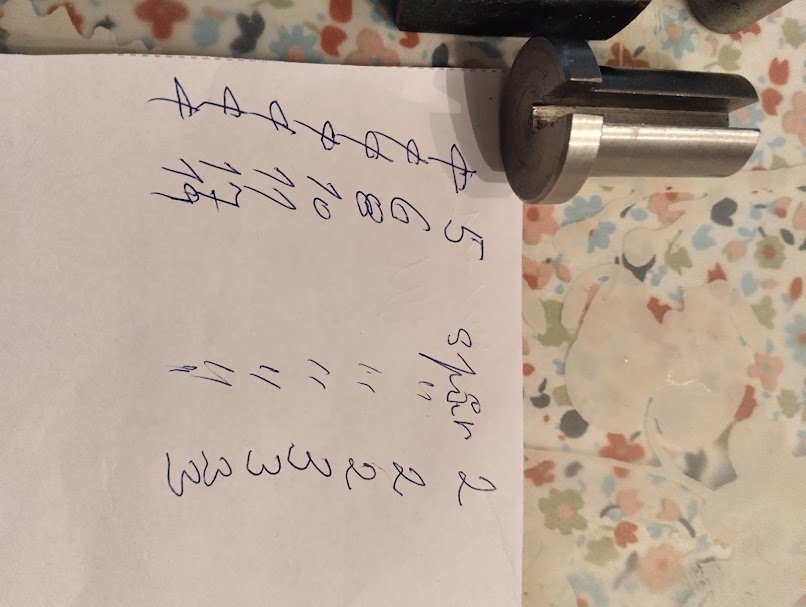 Ø 5 spår 2
Ø 6 " 2
Ø 8 " 2
Ø 10 " 3
Ø 11 " 3
Ø 17 " 3
Ø 19 " 3